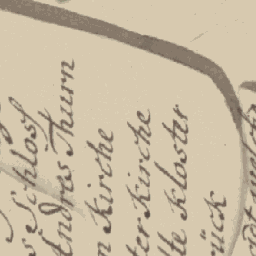 s Schloß
Andræs Thurn
n Kirche
ter Kirche
te Kloster
rück